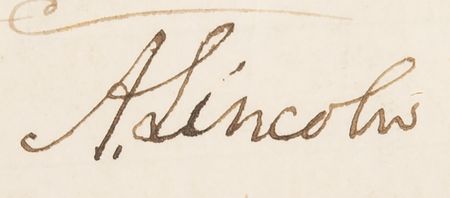 A. Lincoln